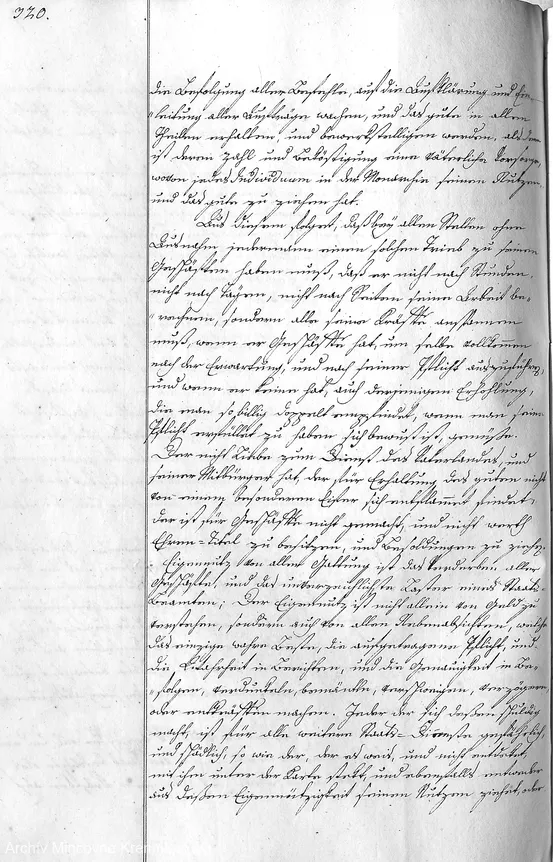 320.
die Befolgung aller Befehle, auf die Aufklärung und Ein-
leitung aller Aufträge wachen, und das gute in allen
Theilen erhalten, und bewerkstelligen werden, als dann
ist deren Zahl und Beköstigung eine väterliche Vorsorge,
wovon jedes Individuum in der Monarchie seinen Nutzen,
und das gute zu ziehen hat.
Aus diesem folget, daß bey allen Stellen ohne
Ausnahm jedermann einen solchen Trieb zu seinen
Geschäften haben muß, daß er nicht nach Stunden,
nicht nach Tägen, nicht nach Seiten seine Arbeit be-
rechnen, sondern alle seine Kräfte anspannen
muß, wenn er Geschäfte hat, um selbe vollkommen
nach der Erwartung, und nach seiner Pflicht auszuführen,
und wenn er keine hat, auch derjenigen Erhohlung,
die man so billig doppelt empfindet, wenn man seine
Pflicht erfüllet zu haben sich bewust ist, genüße.
Der nicht Liebe zum Dienst des Vaterlandes, und
seiner Mitbürger hat, der für Erhaltung des guten nicht
von einem besonderen Eifer sich entflammet findet,
der ist für Geschäfte nicht gemacht, und nicht werth
Ehren-Titel zu besitzen, und Besoldungen zu ziehen.
Eigennutz von aller Gattung ist das Verderben aller
Geschäfte, und das unverzeihlichste Laster eines Staats-
beamten; Der Eigennutz ist nicht allein von Geld zu
verstehen, sondern auch von allen Nebenabsichten, welche
das einzige wahre Beste, die aufgetragene Pflicht, und
die Wahrheit in Berichten, und die Genauigkeit in Be-
folgen, verdunkeln, bemänteln, verschweigen, verzögern
oder entkräften machen. Jeder der sich deßen schuldig
macht, ist für alle weitere Staats-Dienste gefährlich,
und schädlich, so wie der, der es weis, und nicht entdeket,
mit ihm unter der Karte stekt, und ebenfalls entweder
aus deßen Eigennützigkeit seinen Nutzen ziehet, oder